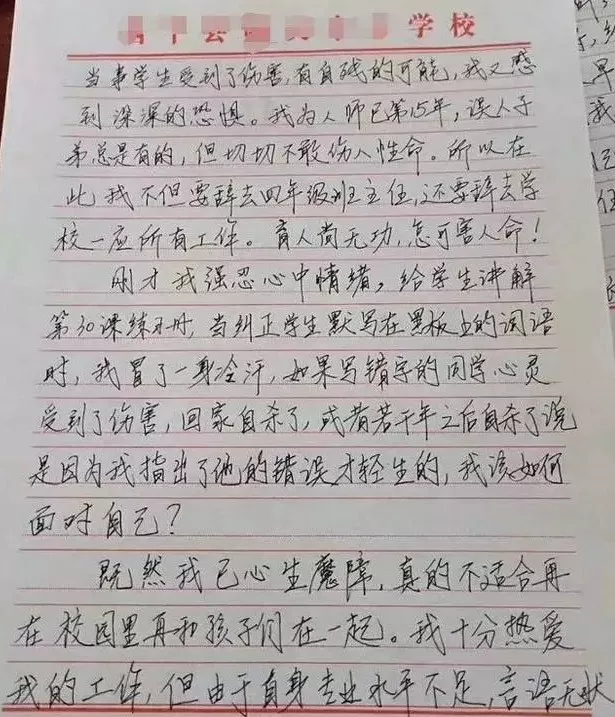 学校
当事学生受到了伤害,有自残的可能,我又感
到深深的恐惧。我为人师已第15年,误人子
弟总是有的,但切切不敢伤人性命。所以在
此我不但要辞去四年级班主任,还要辞去学
校一应所有工作。育人尚无功,怎可害人命!
刚才我强忍心中情绪,给学生讲解
第30课练习时,当纠正学生默写在黑板上的词语
时,我冒了一身冷汗,如果写错字的同学心灵
受到了伤害,回家自杀了,或者若干年之后自杀了说
是因为我指出了他的错误才轻生的,我该如何
面对自己?
既然我已心生魔障,真的不适合再
在校园里再和孩子们在一起。我十分热爱
我的工作,但由于自身专业水平不足,言语无状